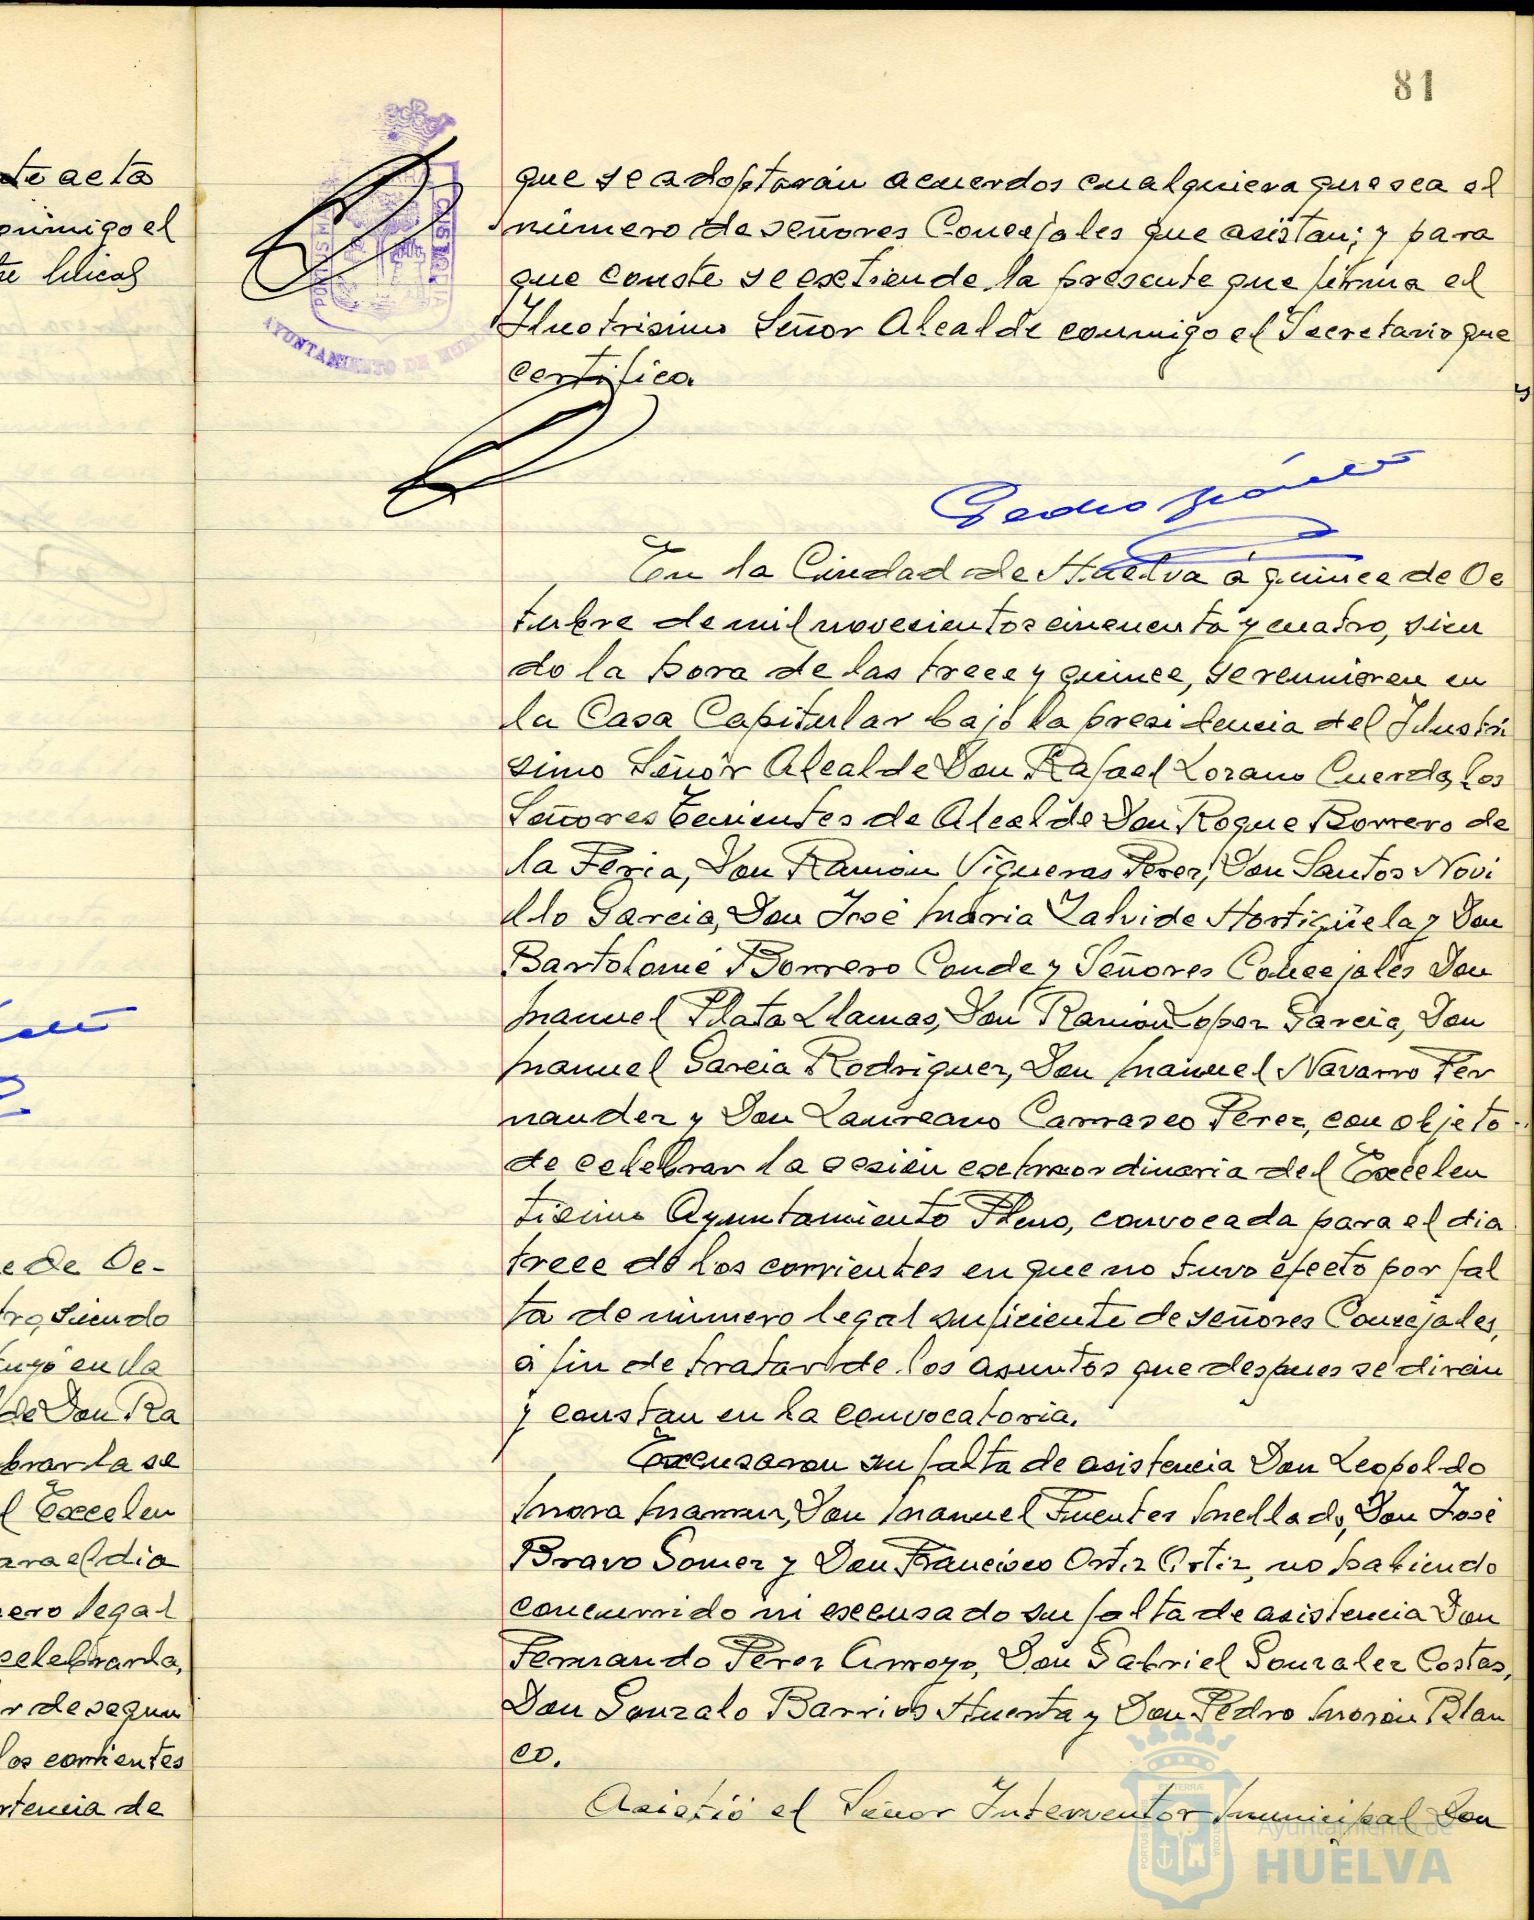 81
te acta
conmigo el
que se adoptarán acuerdos cualquiera que sea el
número de señores Concejales que asistan; y para
que conste se extiende la presente que firma el
Ilustrisimo Señor Alcalde conmigo el Secretario que
certifico.
AYUNTAMIENTO DE HUELVA
Pedro
En la Ciudad de Huelva a quince de Oc
tubre de mil novecientos cincuenta y cuatro, sien
do la hora de las trece y quince, se reunieron en
la Casa Capitular bajo la presidencia del Ilustri
simo Señor Alcalde Don Rafael Lozano Cuerda, los
Señores Tenientes de Alcalde Don Roque Borrero de
la Feria, Don Ramón Vigueras Perez, Don Santos Novi
llo Garcia, Don José Maria Zalvide Hortigüela y Don
Bartolomé Borrero Conde y Señores Concejales Don
Manuel Plata Llamas, Don Ramón Lopez Garcia, Don
Manuel Garcia Rodriguez, Don Manuel Navarro Fer
nandez y Don Laureano Carrasco Perez, con objeto
de celebrar la sesión extraordinaria del Excelen
tisimo Ayuntamiento Pleno, convocada para el dia
trece de los corrientes en que no tuvo efecto por fal
ta de número legal suficiente de señores Concejales,
a fin de tratar de los asuntos que despues se dirán
y constan en la convocatoria.
Excusaron su falta de asistencia Don Leopoldo
Mora Don Manuel Fuentes Mellado, Don José
Bravo Gomez y Don Francisco Ortiz Ortiz, no habiendo
concurrido ni excusado su falta de asistencia Don
Fernando Perez Arroyo, Don Gabriel Gonzalez Costas,
Don Gonzalo Barrios Huerta y Don Pedro Morón Blan
co.
Asistió el Señor Interventor Municipal Don
e de Oc-
tro, siendo
en la
de Don Ra
brarla se
l Excelen
ara el dia
ero legal
celebrarla,
r de segun
los corrientes
rtencia de
Ayuntamiento de
HUELVA